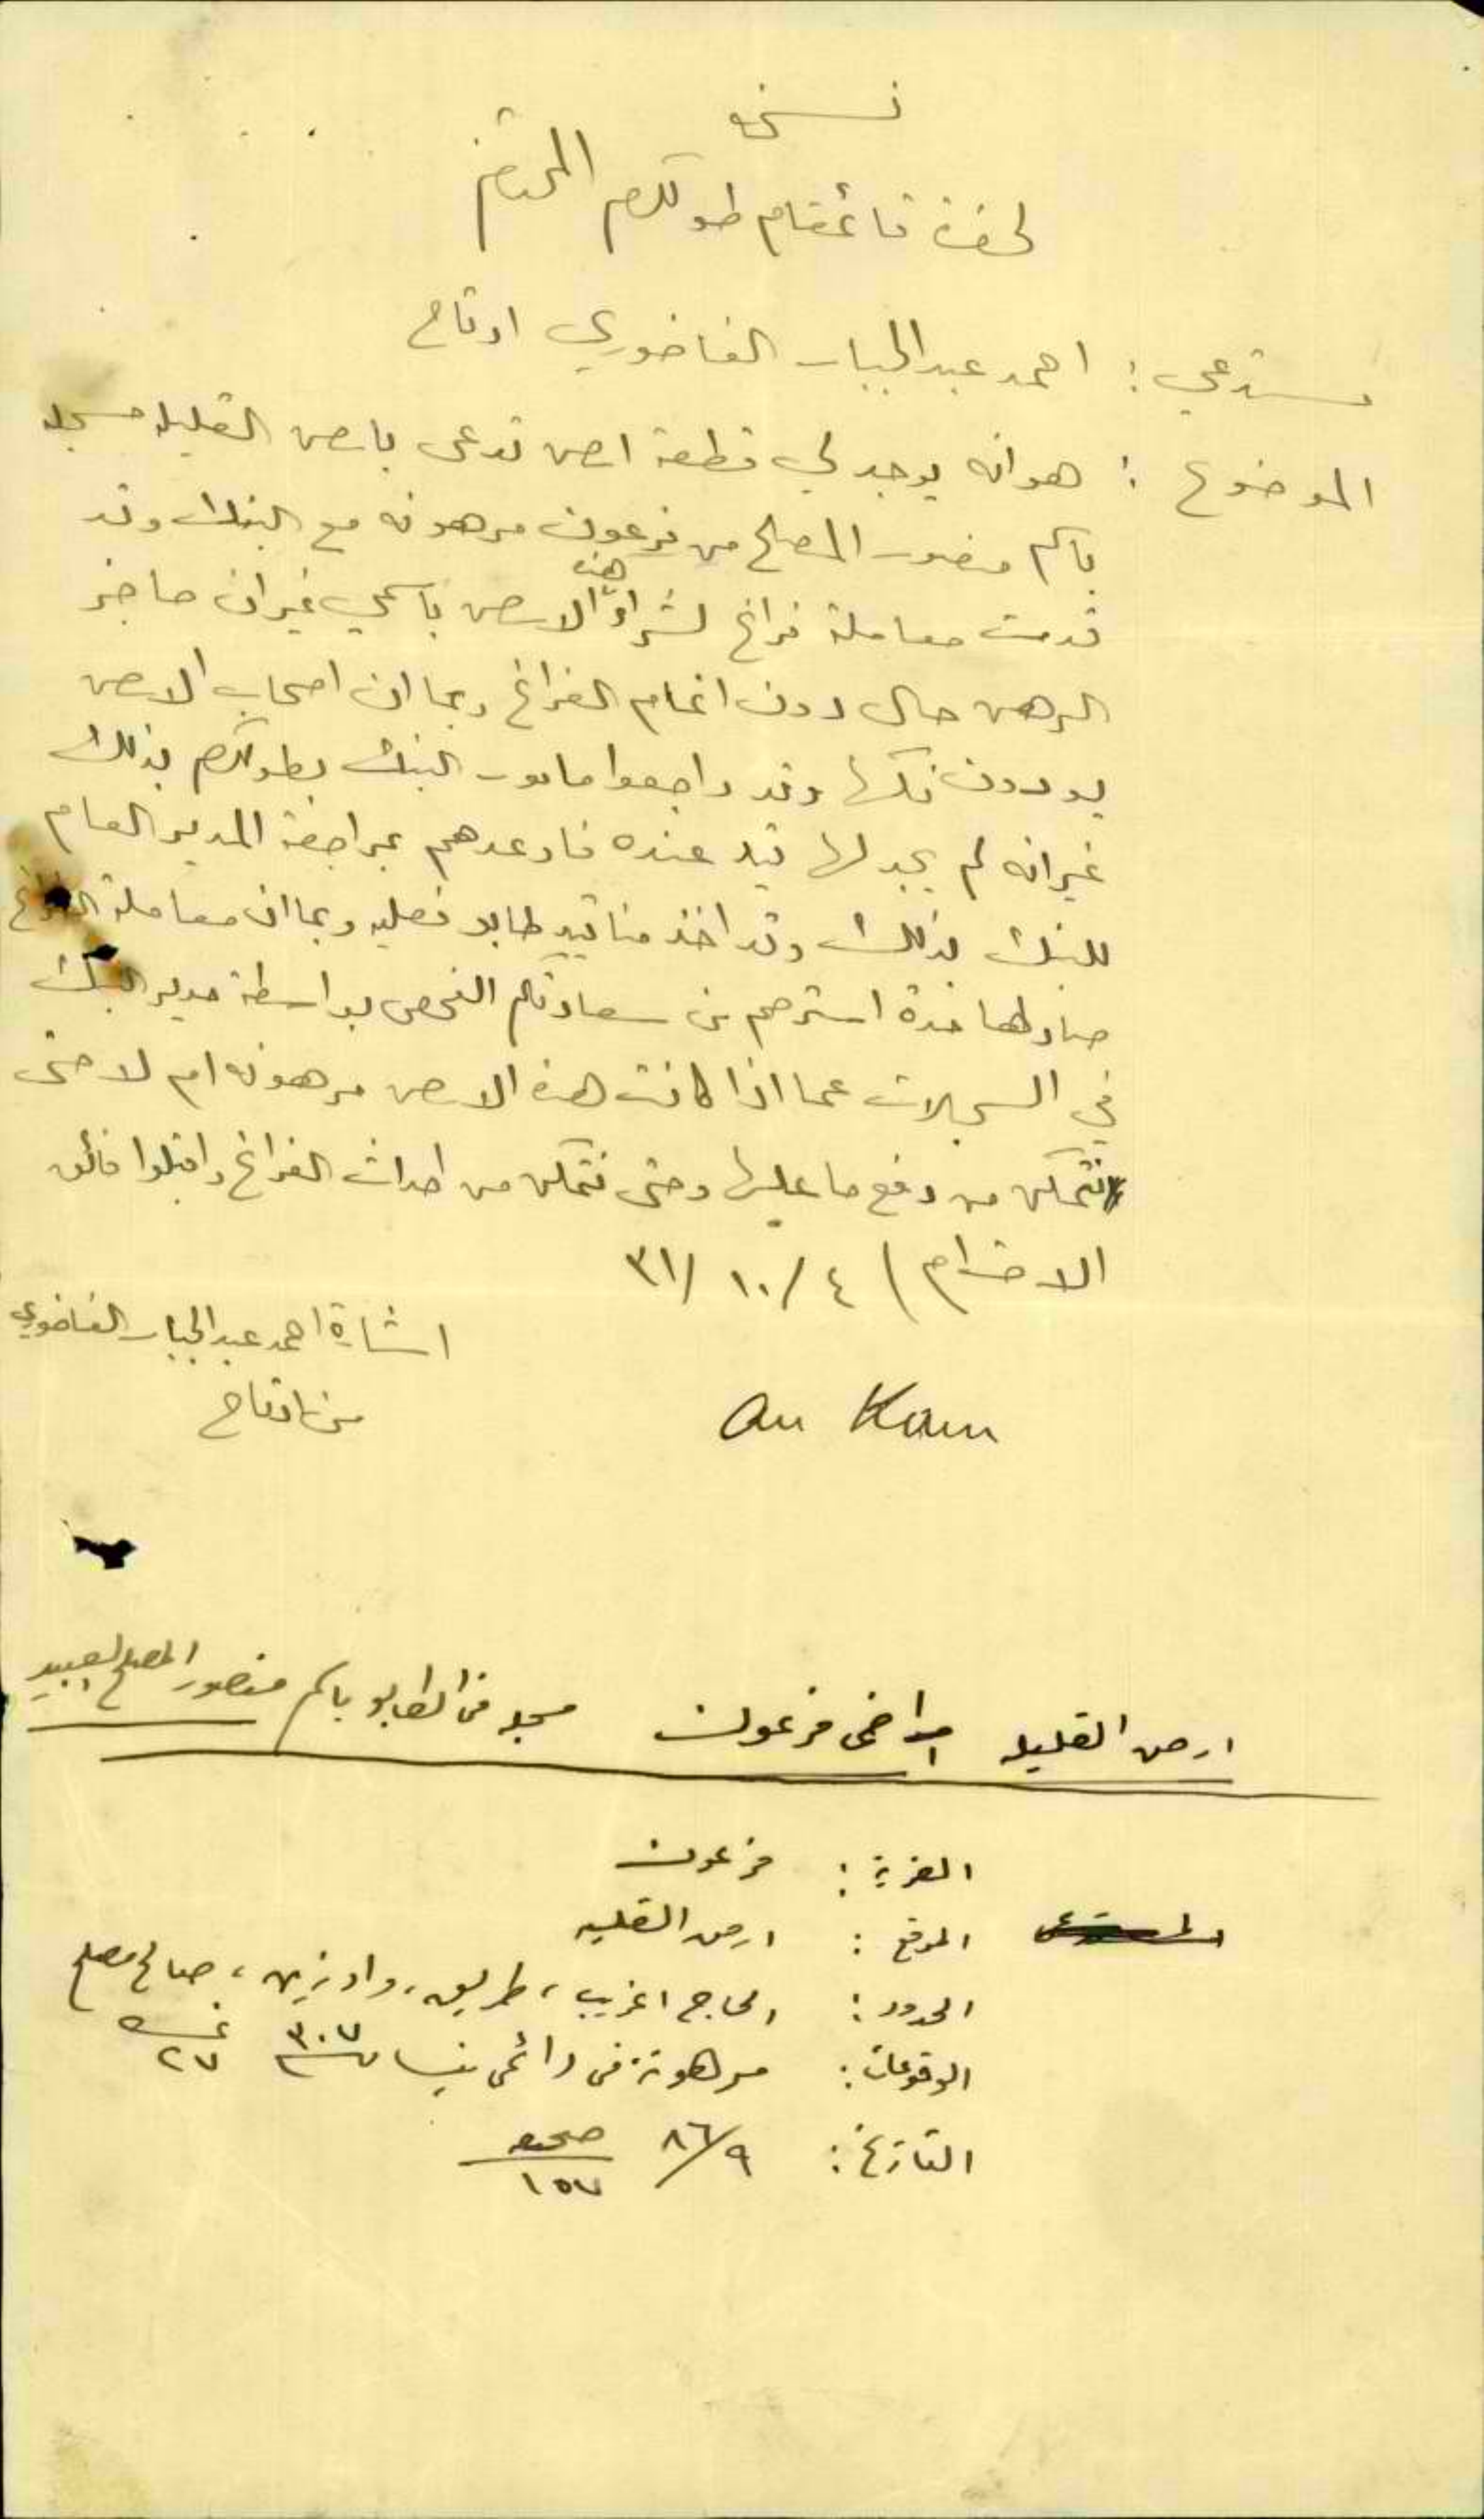 نسخه
لحضرة قائمقام طولكرم المحترم
مستدعي : احمد عبدالجبار الفاخوري ارتاح
الموضوع : هوانه يوجد لي قطعة ارض تدعى بارض القليله مسجله
باسم منصور المصلح من فرعون مرهونه مع البنك وقد
قدمت معاملة فراغ لشراء هذه الارض باسمي غيران حاجز
الرهن حال دون اتمام الفراغ وبما ان اصحاب الارض
يوددون فكها وقد راجعوا مامور البنك بطولكرم بذلك
غيرانه لم يجد لها قيد عنده فاوعدهم بمراجعة المدير العام
للبنك بذلك وقد اخذ منا قيد طابو فعليه وبما ان معاملة الفراغ
صار لها مدة استرحم من سعادتكم الفحص بواسطة مدير البنك
في السجلات عما اذا كانت هذه الارض مرهونه ام لا حتى
نتمكن من دفع ما عليها وحتى نتمكن من احداث الفراغ واقبلوا فائق
الاحترام / ٤/١٠/٣١
اشارة احمد عبدالجبار الفاخوري
من ارتاح
ارض القليله اراضى فرعون مسجله في الطابو باسم منصور المصلح العبيد
القرية : فرعون
الموقع : ارض القليله
الحدود : الحاج اغريب ، طريق ، واد زين ، صالح مصلح
الوقوعات : مرهونة فى دائمى نيسان ٣٠٧
٢٧
التاريخ : ٨٦/٩ صحيفه
١٥٧